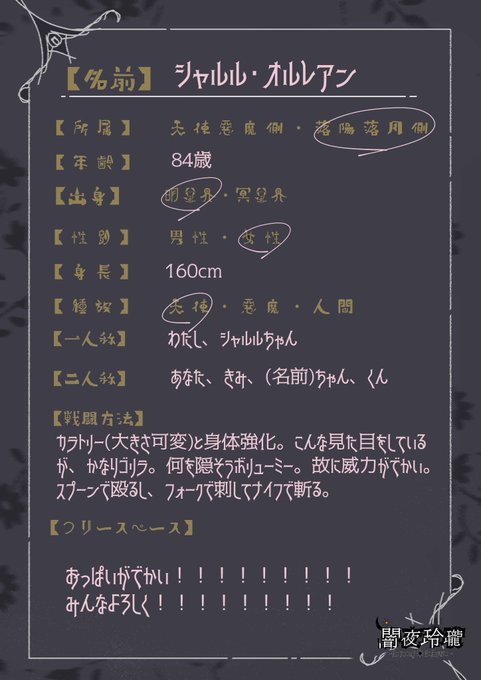 【名前】 シャルル・オルレアン
【所属】 天使悪魔側・落陽落月側
【年齢】 84歳
【出身】 明星界・冥星界
【性別】 男性・女性
【身長】 160cm
【種族】 天使・悪魔・人間
【一人称】 わたし、シャルルちゃん
【二人称】 あなた、きみ、(名前)ちゃん、くん
【戦闘方法】
カラトリー(大きさ可変)と身体強化。こんな見た目をしている
が、かなりゴリラ。何を隠そうボリューミー。故に威力がでかい。
スプーンで殴るし、フォークで刺してナイフで斬る。
【フリースペース】
おっぱいがでかい！！！！！！！！！
みんなよろしく！！！！！！！！！
闇夜玲瓏